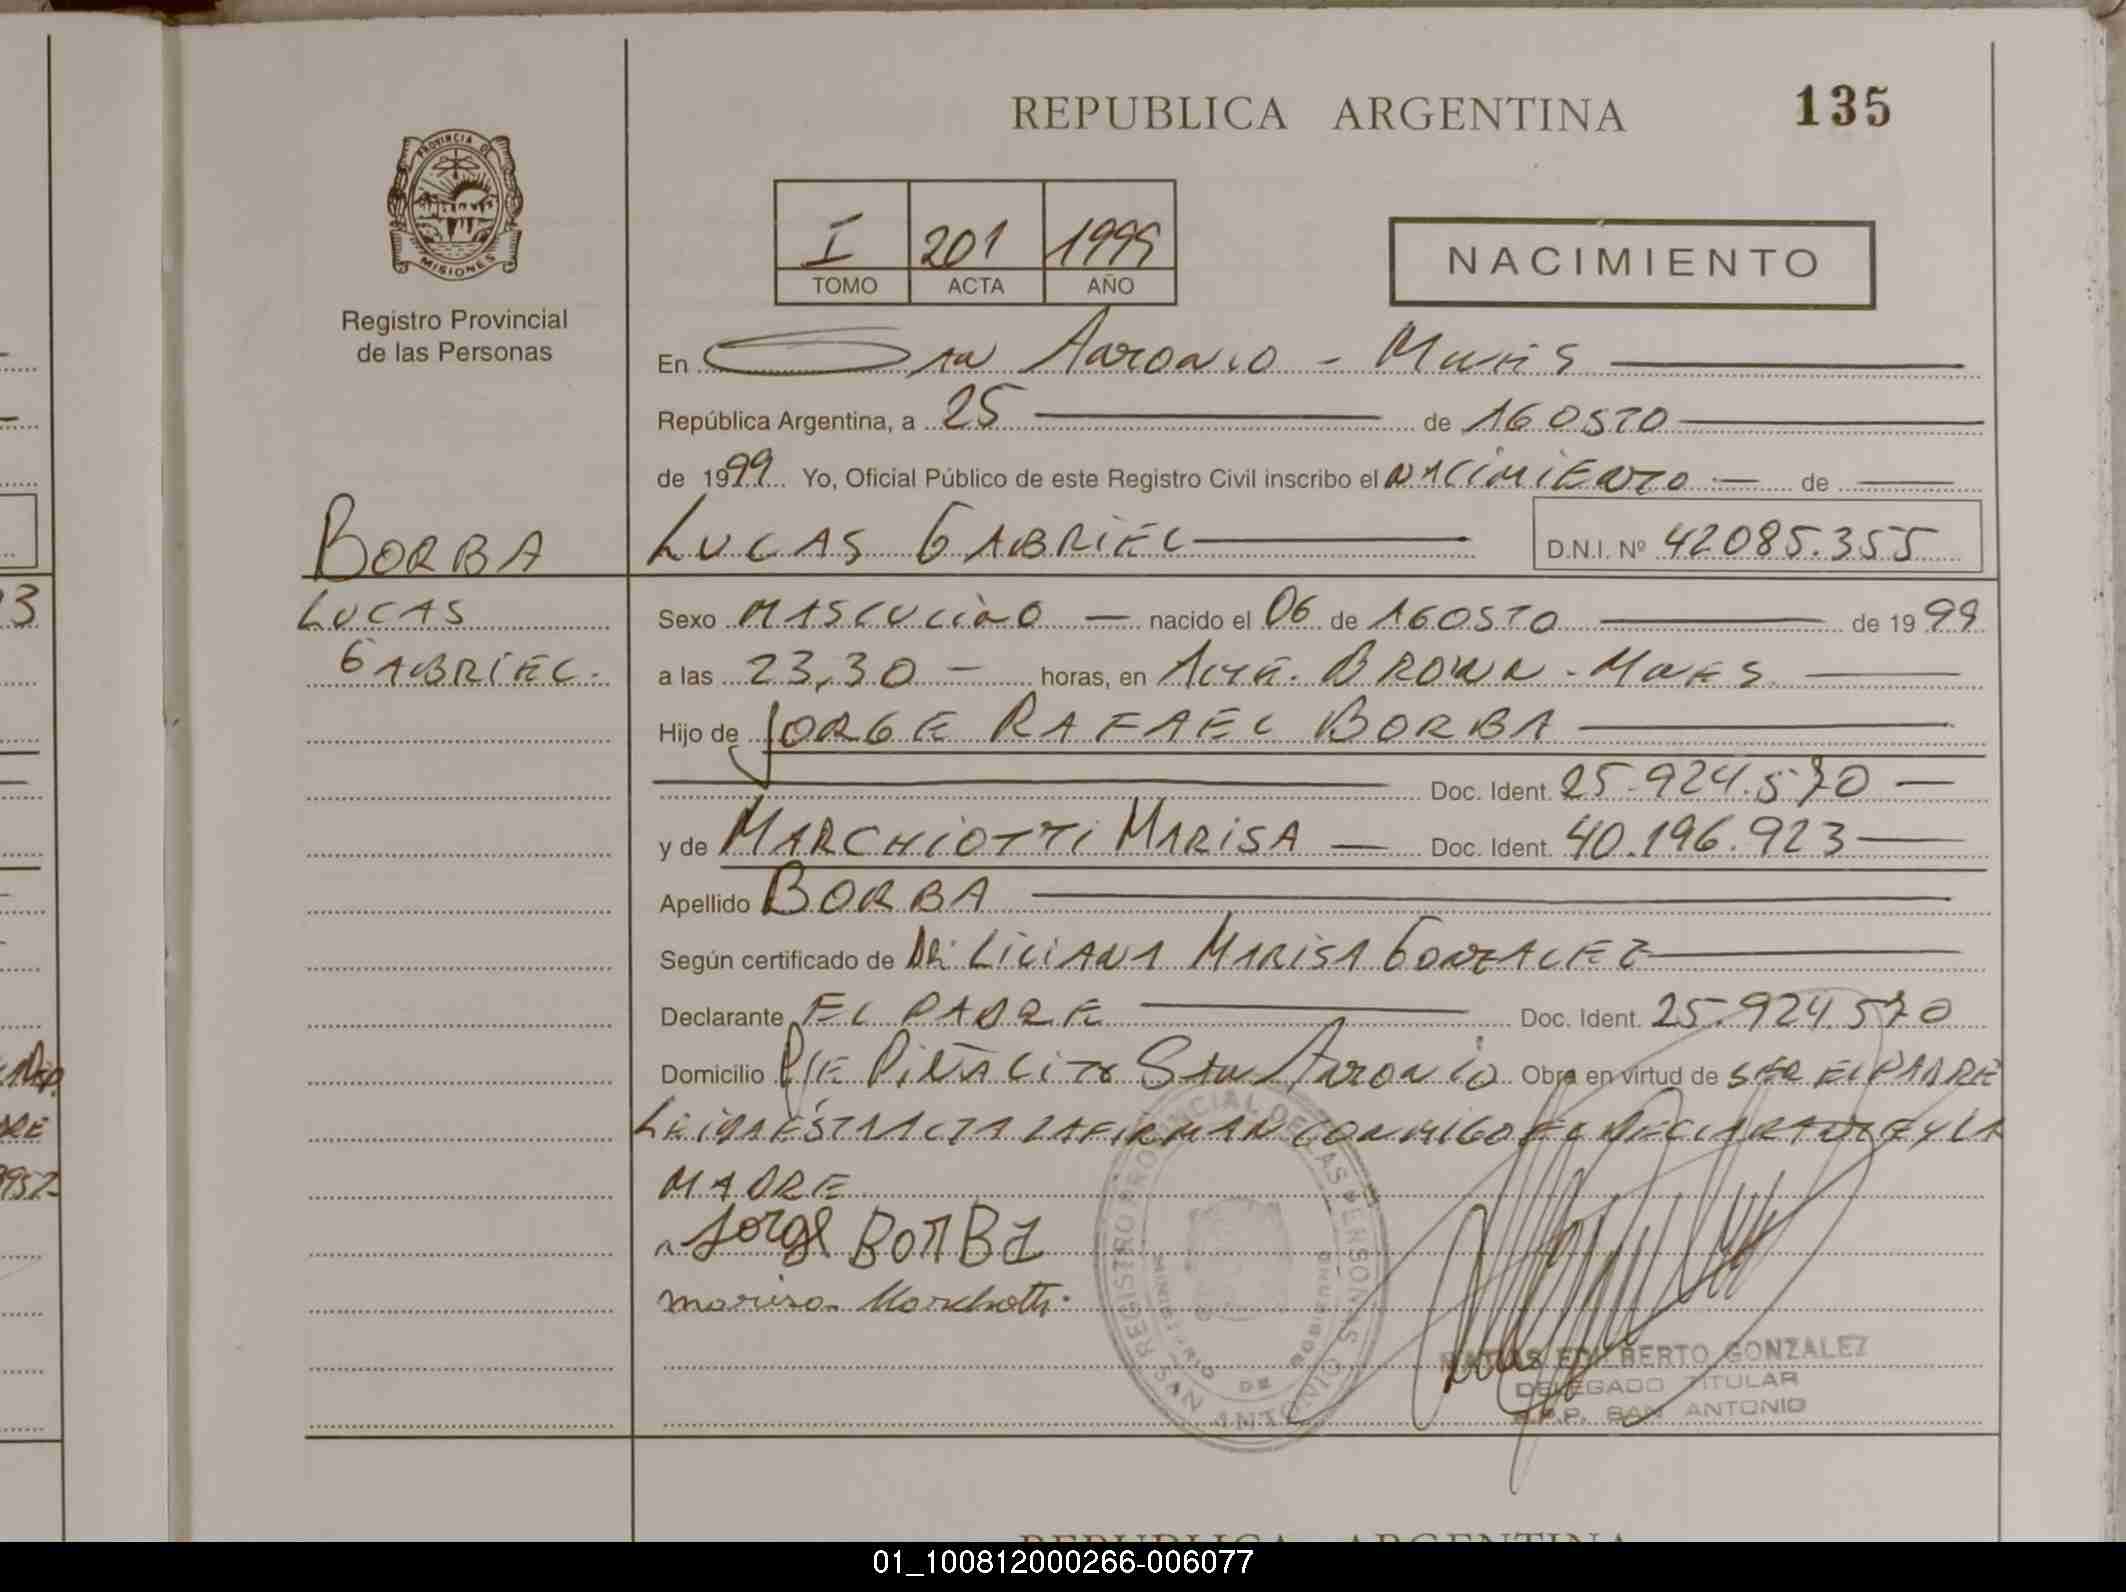 REPUBLICA ARGENTINA
135
PROVINCIA DE
MISIONES
Registro Provincial
de las Personas
I 201 1999
TOMO ACTA AÑO
NACIMIENTO
En San Antonio - Mnes
República Argentina, a 25 de AGOSTO
de 1999 Yo, Oficial Público de este Registro Civil inscribo el NACIMIENTO de
BORBA
LUCAS GABRIEL
D.N.I. Nº 42085.355
LUCAS
GABRIEL.
Sexo MASCULINO nacido el 06 de AGOSTO de 1999
a las 23,30 horas, en ALTE. BROWN - MNES
Hijo de JORGE RAFAEL BORBA
Doc. Ident. 25.924.570
y de MARCHIOTTI MARISA Doc. Ident. 40.196.923
Apellido BORBA
Según certificado de DR. LILIANA MARISA GONZALEZ
Declarante EL PADRE Doc. Ident. 25.924.570
Domicilio San Antonio Obra en virtud de SER EL PADRE
LEIDA ESTA ACTA LA FIRMAN CONMIGO EL DECLARANTE Y LA
MADRE
Jorge BORBA
marisa Marchiotti
REGISTRO PROVINCIAL DE LAS PERSONAS
SAN ANTONIO
MINISTERIO DE GOBIERNO
EDILBERTO GONZALEZ
DELEGADO TITULAR
R.P.P. SAN ANTONIO
REPUBLICA ARGENTINA
01_100812000266-006077